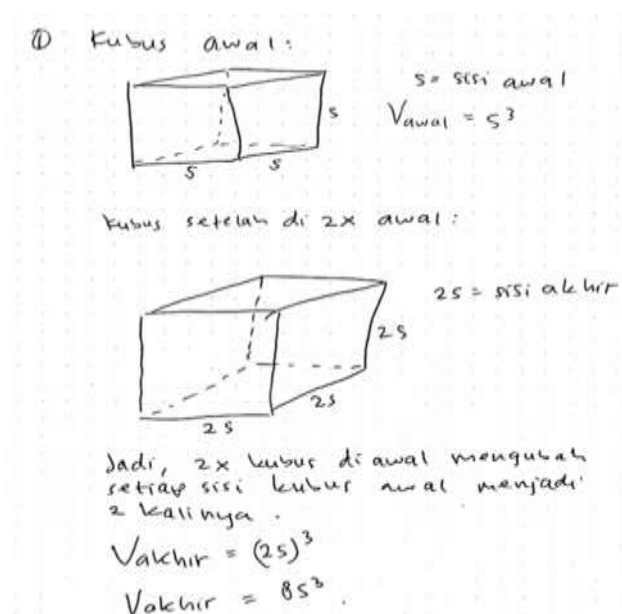 ① Kubus awal:
s = sisi awal
V awal = s³
s
s
s
Kubus setelah di 2x awal:
2s = sisi akhir
2s
2s
2s
Jadi, 2x kubus di awal mengubah
setiap sisi kubus awal menjadi
2 kalinya.
Vakhir = (2s)³
Vakhir = 8s³.